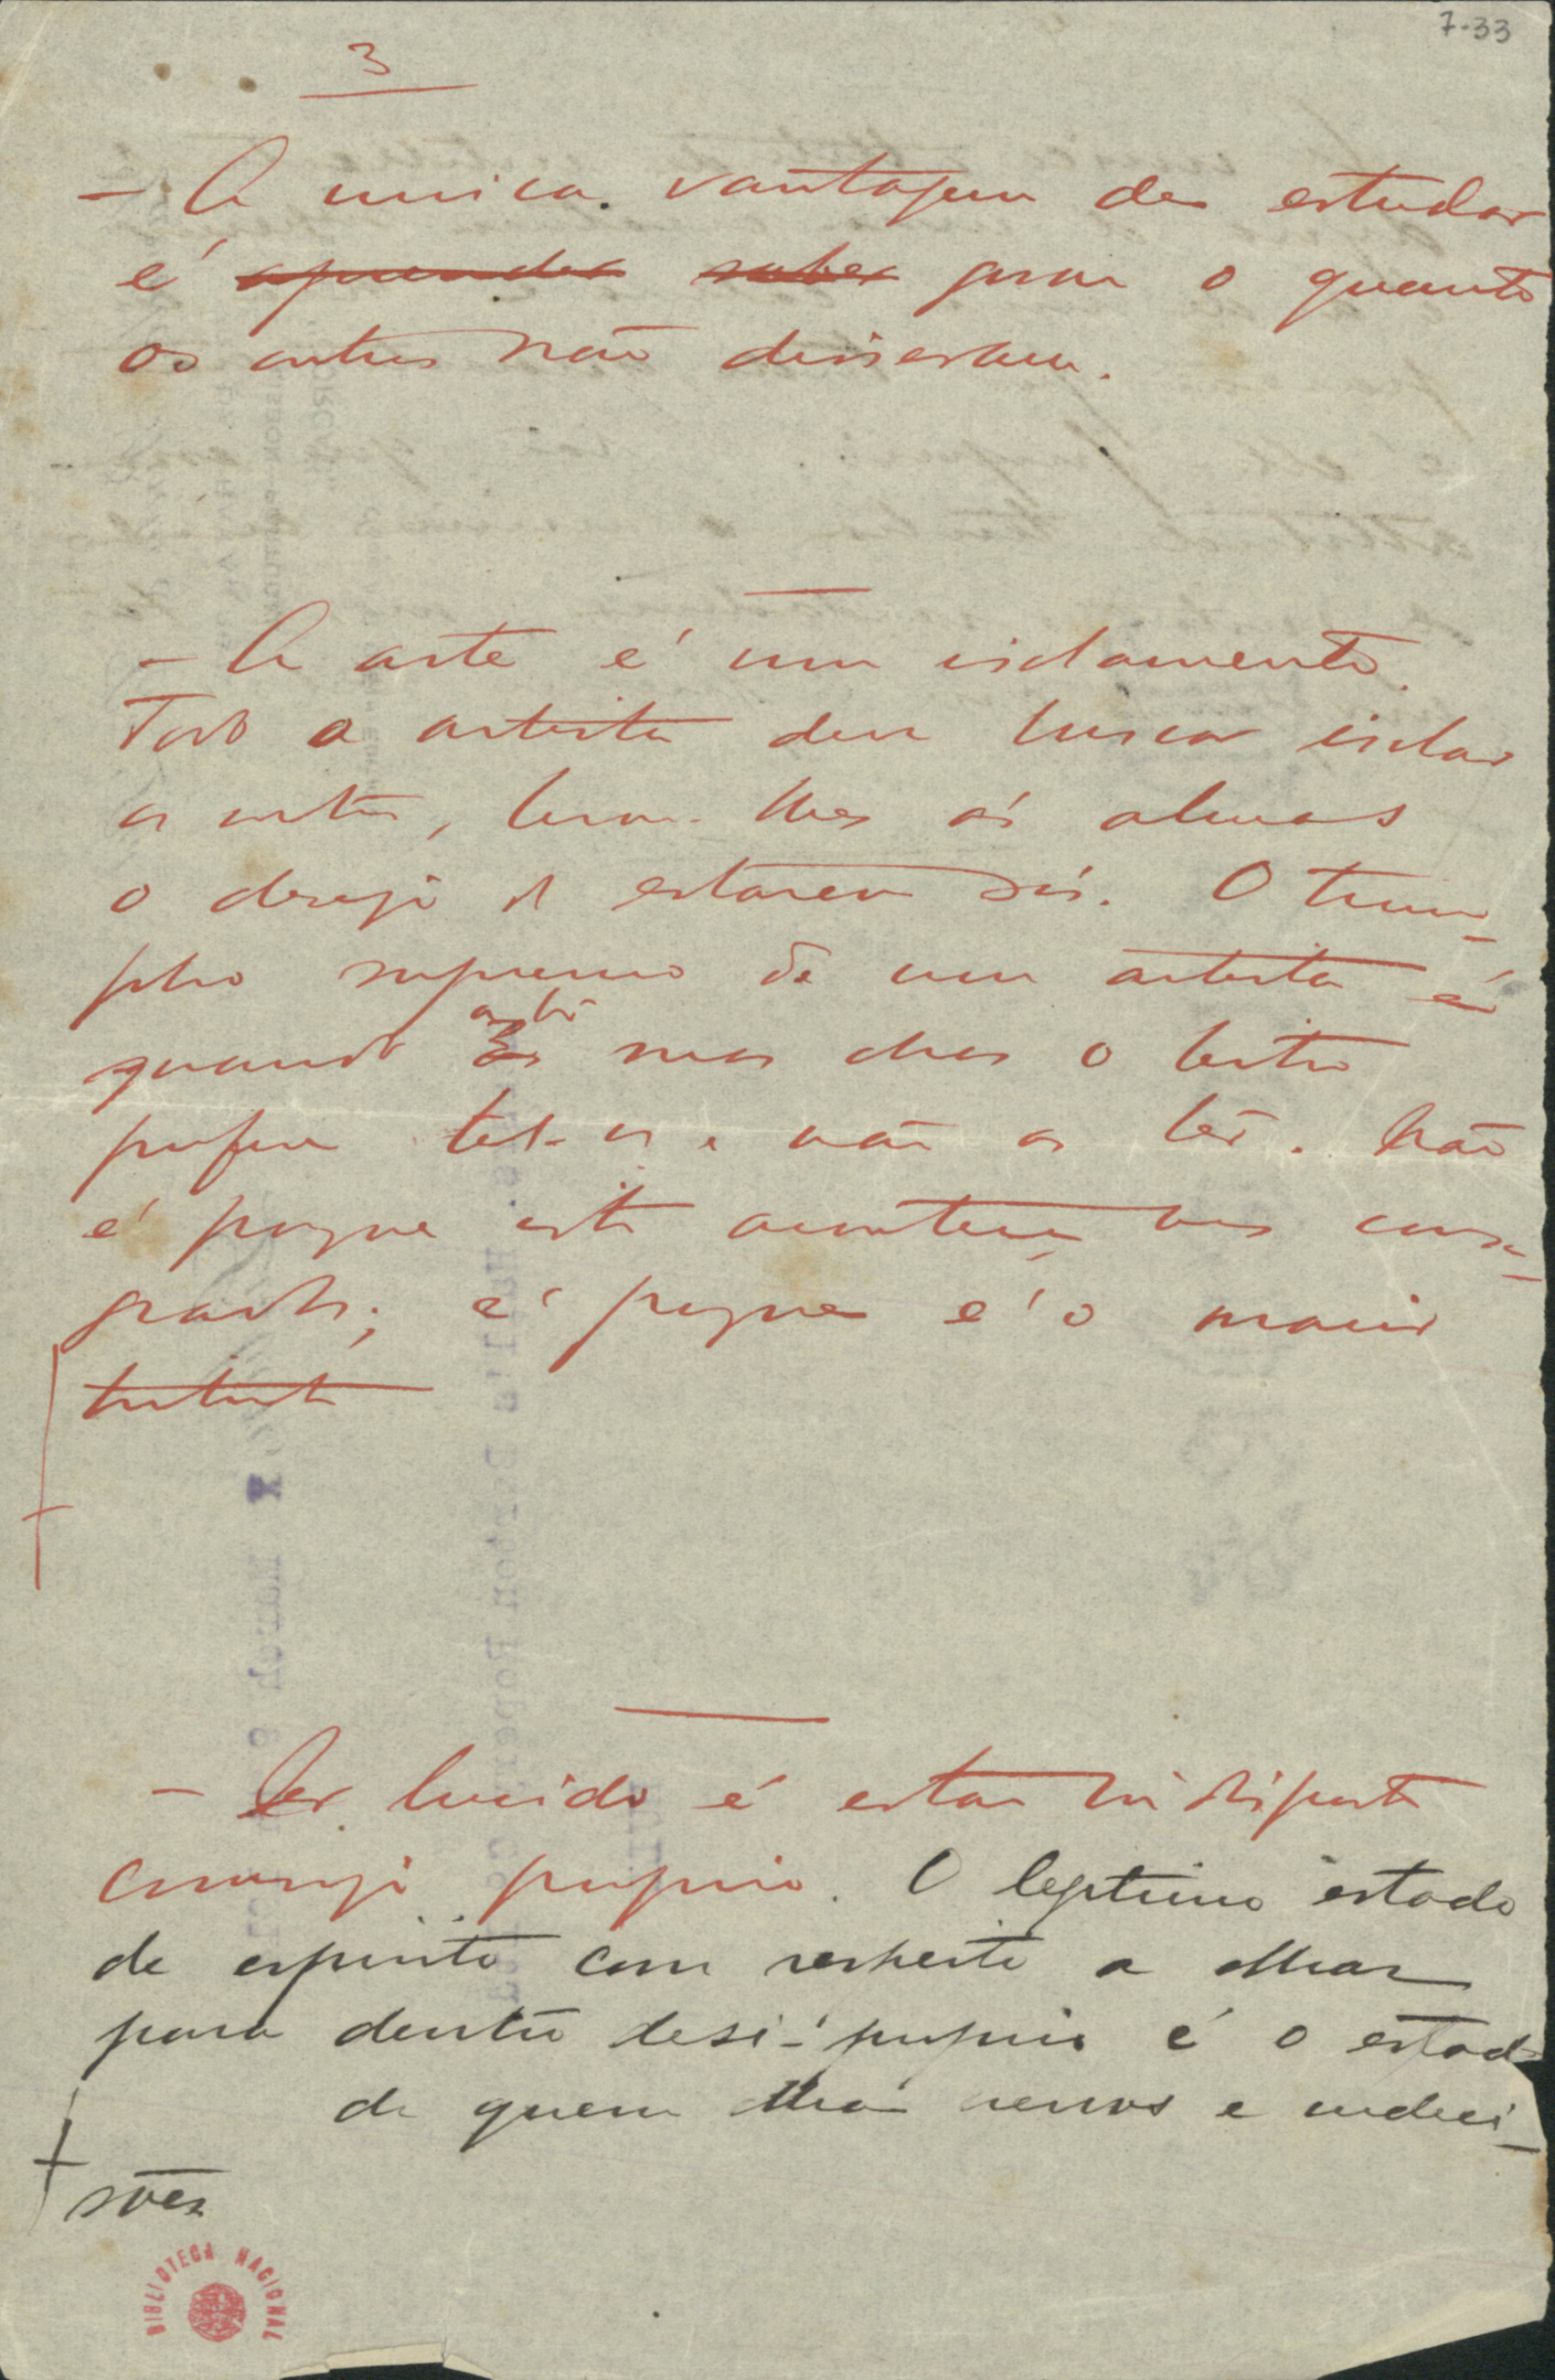 7-33
3
- A unica vantagem de estudar
é aprender saber gosar o quanto
os outros não disseram.
- A arte é um isolamento.
Todo o artista deve buscar isolar
os outros, levar-lhes ás almas
o desejo de estarem sós. O trium-
pho supremo de um artista é
quando ao ler suas obras o leitor
prefere tel-as e não as ler. Não
é porque isto aconteça aos consa-
grados; é porque é o maior
tributo
- Ser lucido é estar indisposto
comsigo proprio. O legitimo estado
de espirito com respeito a olhar
para dentro de si-proprio é o estado
de quem olha nervos e indeci-
sões
BIBLIOTECA NACIONAL